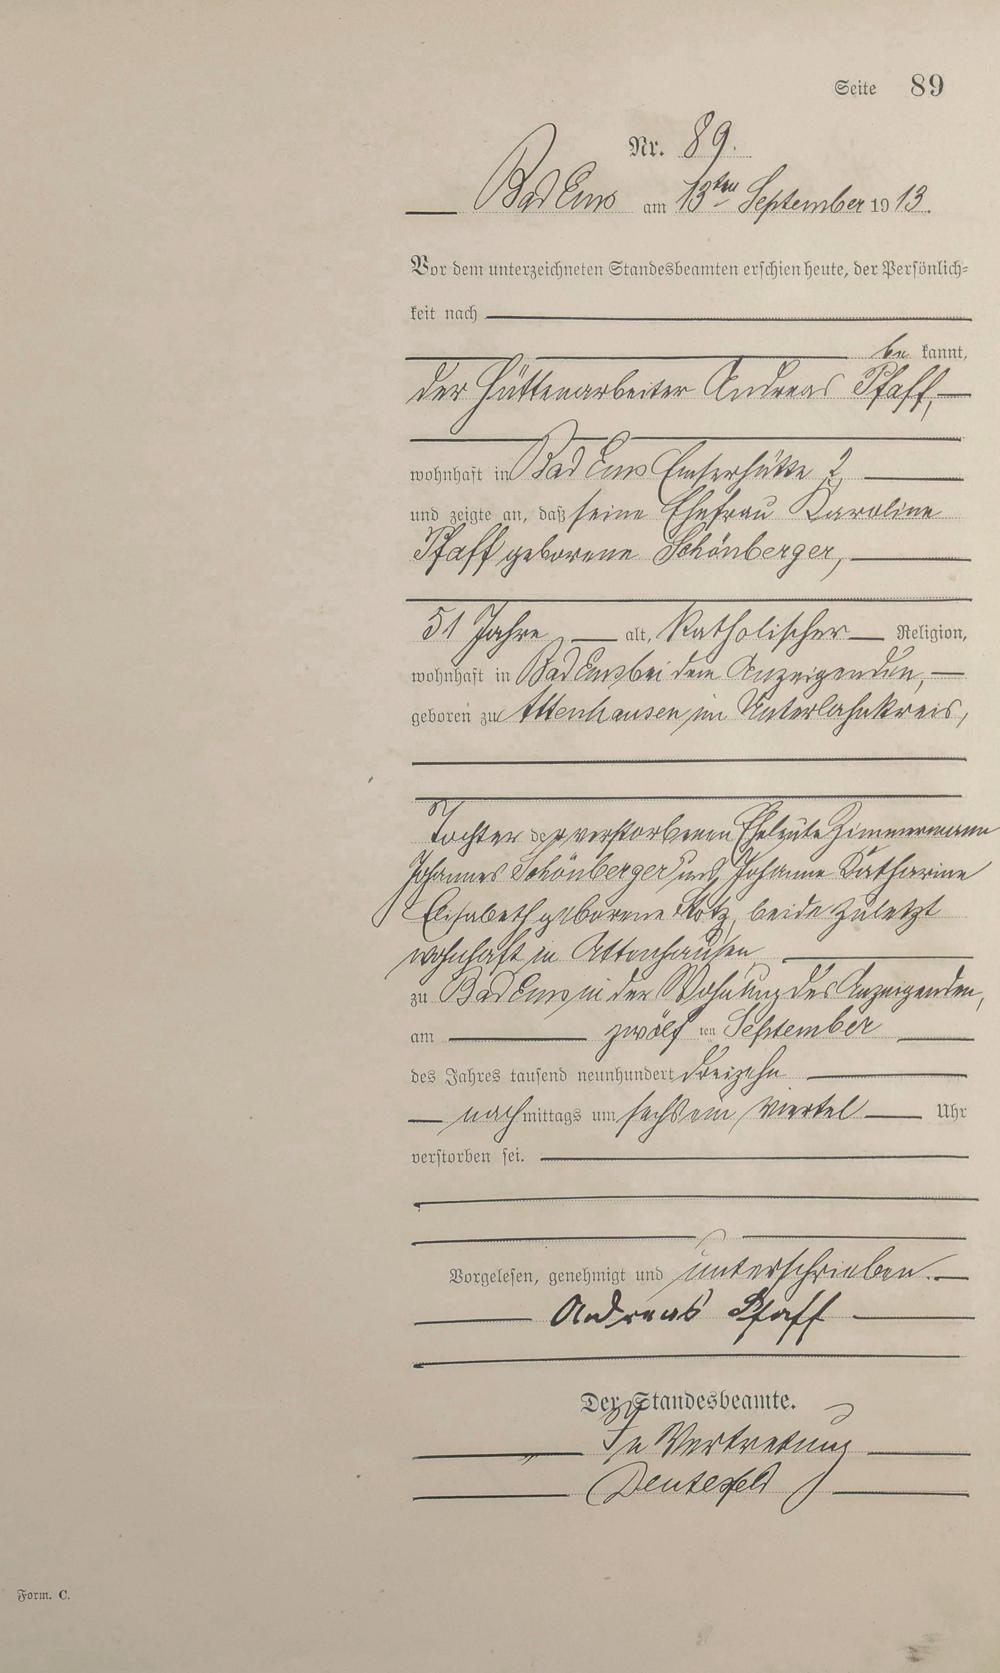 Seite 89
Nr. 89.
Bad Ems am 13ten September 1913.
Vor dem unterzeichneten Standesbeamten erschien heute, der Persönlich-
keit nach
be kannt,
der Hüttenarbeiter Andreas Pfaff,
wohnhaft in Bad Ems Emserhütte 2,
und zeigte an, daß seine Ehefrau Karoline
Pfaff geborene Schönberger,
51 Jahre alt, katholischer Religion,
wohnhaft in Bad Ems bei dem Anzeigenden,
geboren zu Attenhausen im Unterlahnkreis,
Tochter der verstorbenen Eheleute Zimmermann
Johannes Schönberger und Johanne Katharine
Elisabeth geborene beide zuletzt
wohnhaft in Attenhausen
zu Bad Ems in der Wohnung des Anzeigenden,
am zwölf ten September
des Jahres tausend neunhundert dreizehn
nachmittags um sechs ein viertel Uhr
verstorben sei.
Vorgelesen, genehmigt und unterschrieben.
Andreas Pfaff
Der Standesbeamte.
In Vertretung
Form. C.